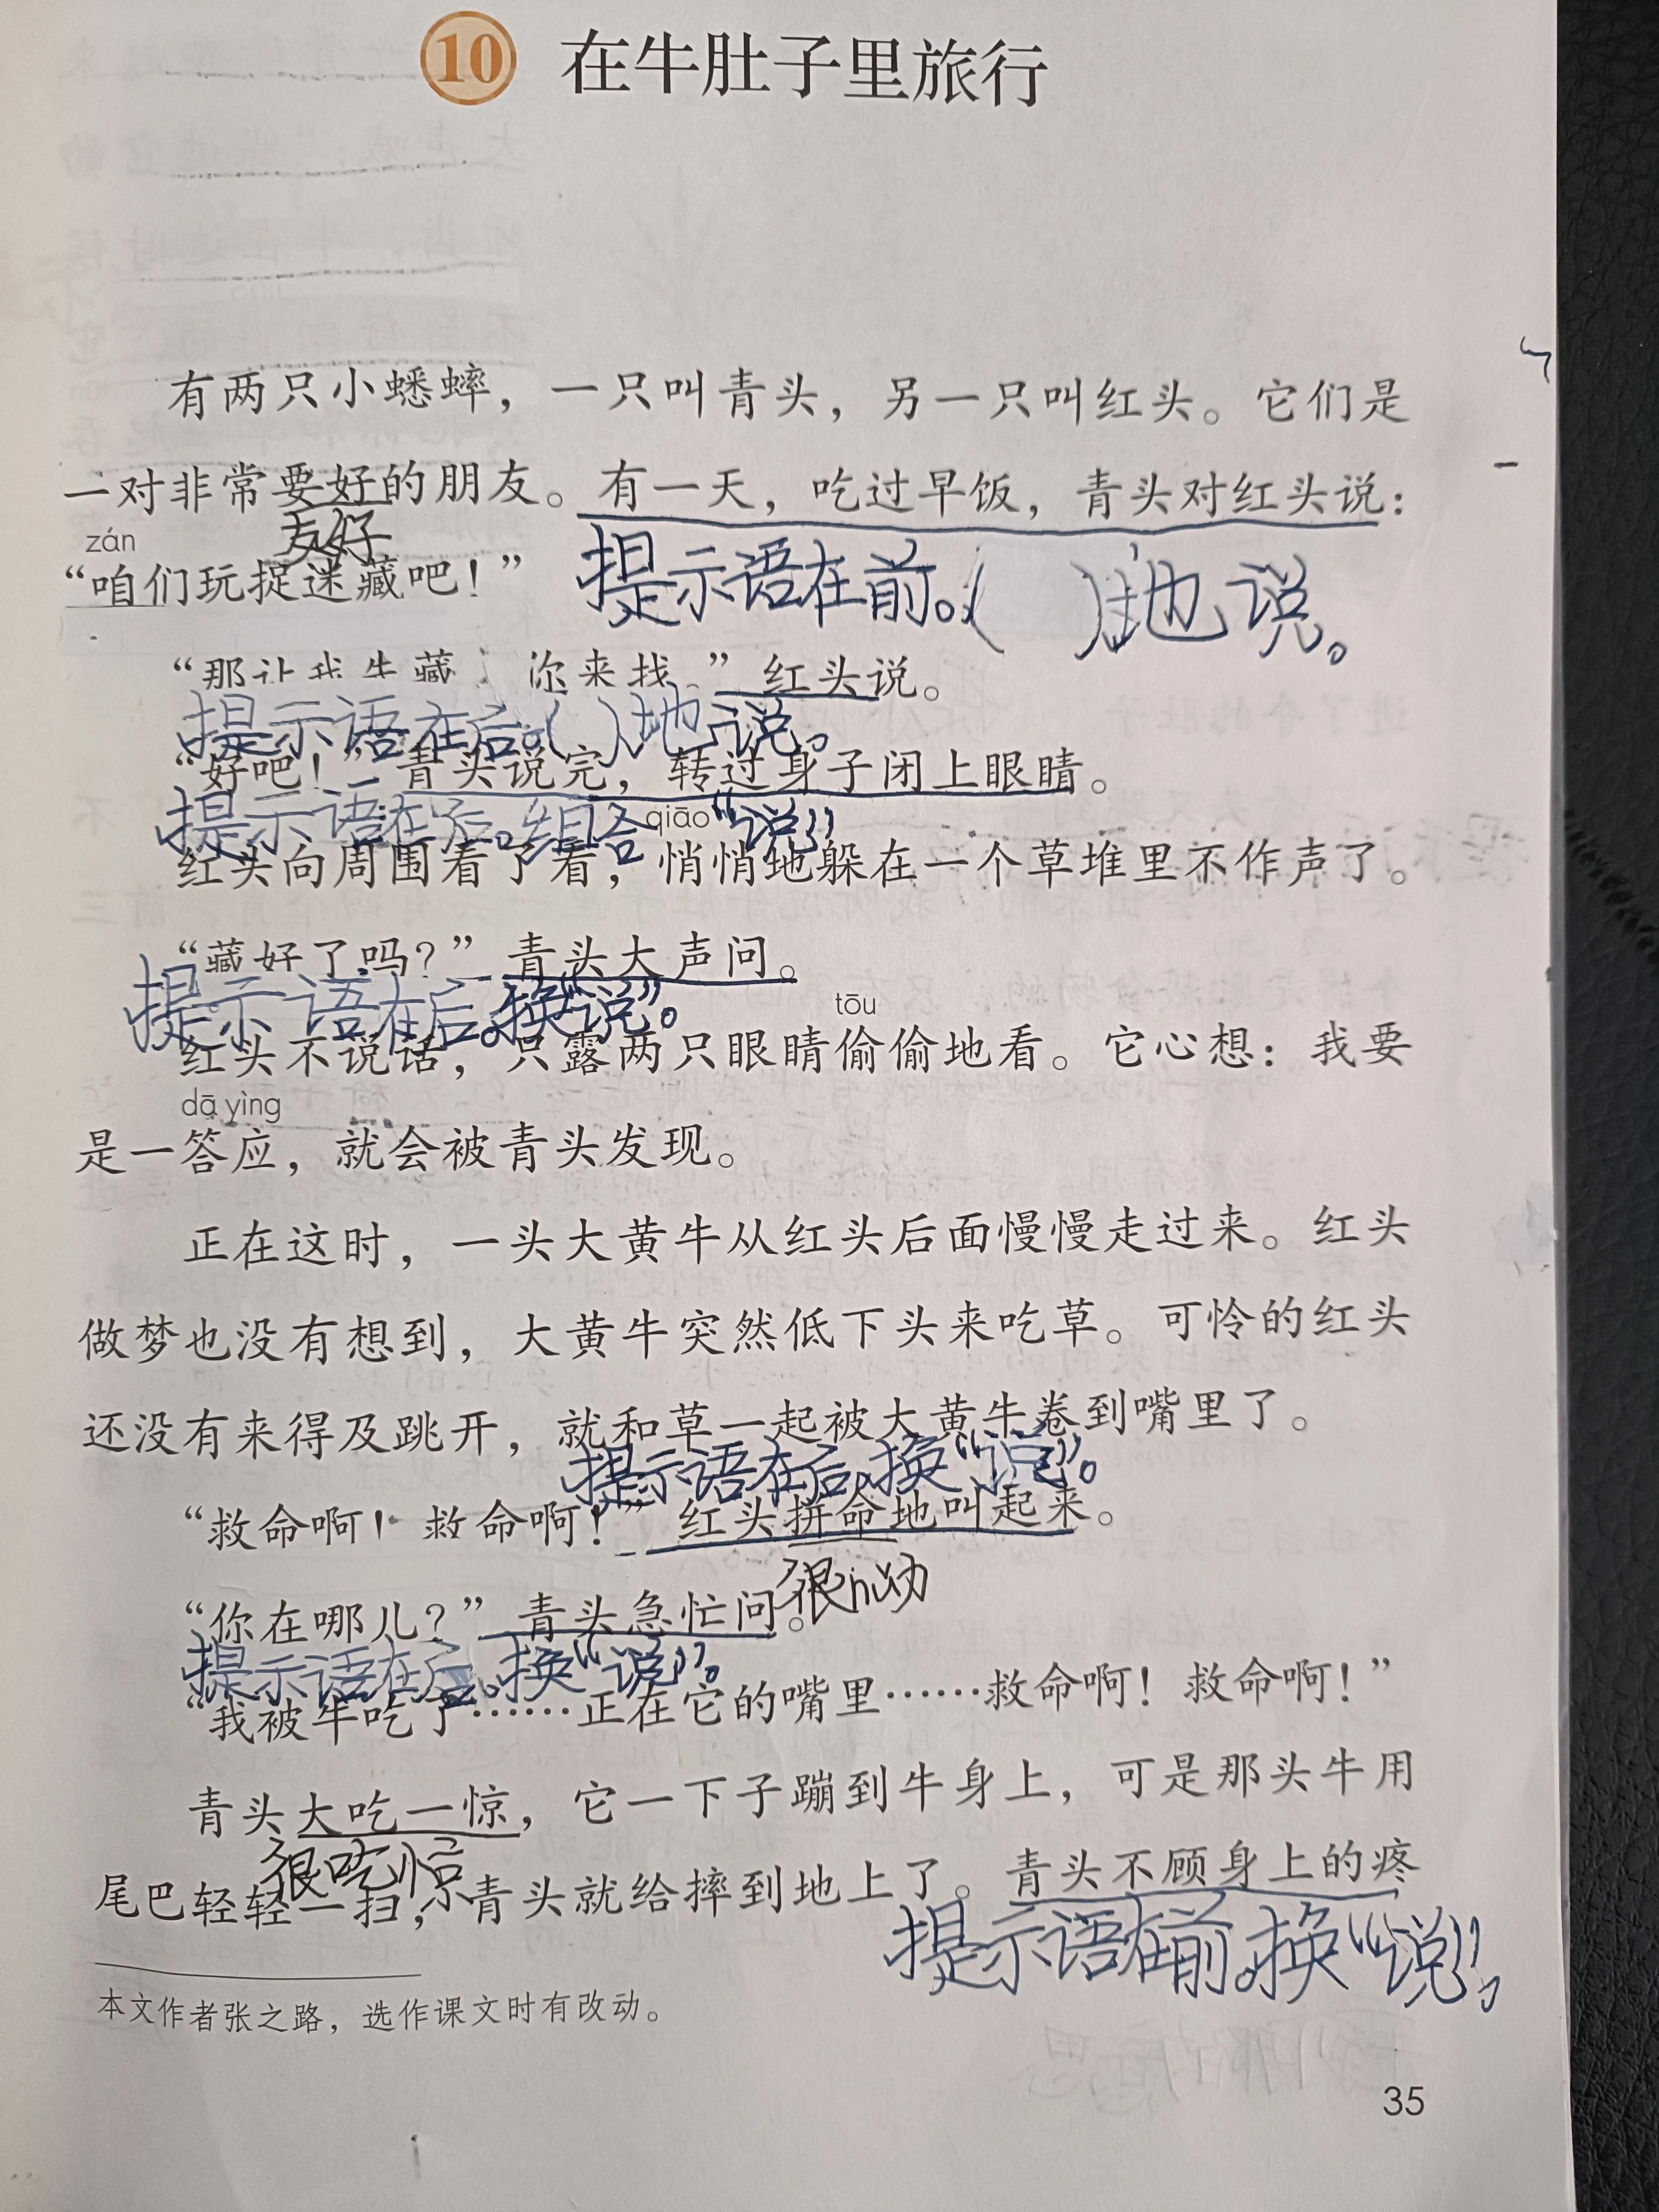 10 在牛肚子里旅行
有两只小蟋蟀，一只叫青头，另一只叫红头。它们是
一对非常要好的朋友。有一天，吃过早饭，青头对红头说：
友好
zán
“咱们玩捉迷藏吧！”
提示语在前。（ ）地说。
“那让我先藏，你来找。”红头说。
提示语在后。（ ）地说。
“好吧！”青头说完，转过身子闭上眼睛。
提示语在后。组合“说”
qiāo
红头向周围看了看，悄悄地躲在一个草堆里不作声了。
“藏好了吗？”青头大声问。
提示语在后。换“说”。
tōu
红头不说话，只露两只眼睛偷偷地看。它心想：我要
dā yìng
是一答应，就会被青头发现。
正在这时，一头大黄牛从红头后面慢慢走过来。红头
做梦也没有想到，大黄牛突然低下头来吃草。可怜的红头
还没有来得及跳开，就和草一起被大黄牛卷到嘴里了。
提示语在后。换“说”。
“救命啊！救命啊！”红头拼命地叫起来。
很nu力
“你在哪儿？”青头急忙问。
提示语在后。换“说”。
“我被牛吃了……正在它的嘴里……救命啊！救命啊！”
青头大吃一惊，它一下子蹦到牛身上，可是那头牛用
很吃惊
尾巴轻轻一扫，青头就给摔到地上了。青头不顾身上的疼
提示语在前。换“说”。
本文作者张之路，选作课文时有改动。
35